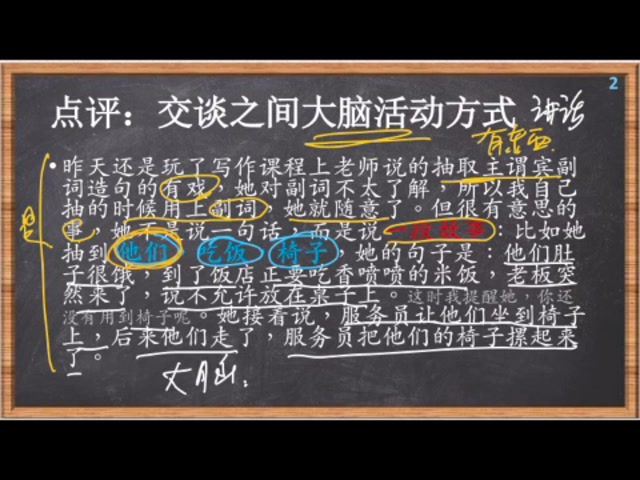 2
点评：交谈之间大脑活动方式 讲话
有东西
•昨天还是玩了写作课程上老师说的抽取主谓宾副
词造句的有戏，她对副词不太了解，所以我自己
抽的时候用上副词，她就随意了。但很有意思的
事，她不是说一句话，而是说一段故事：比如她
抽到 他们 吃饭 椅子，她的句子是：他们肚
子很饿，到了饭店正要吃香喷喷的米饭，老板突
然来了，说不允许放在桌子上。这时我提醒她，你还
没有用到椅子呢。她接着说，服务员让他们坐到椅子
上，后来他们走了，服务员把他们的椅子摞起来
了。
大脑：